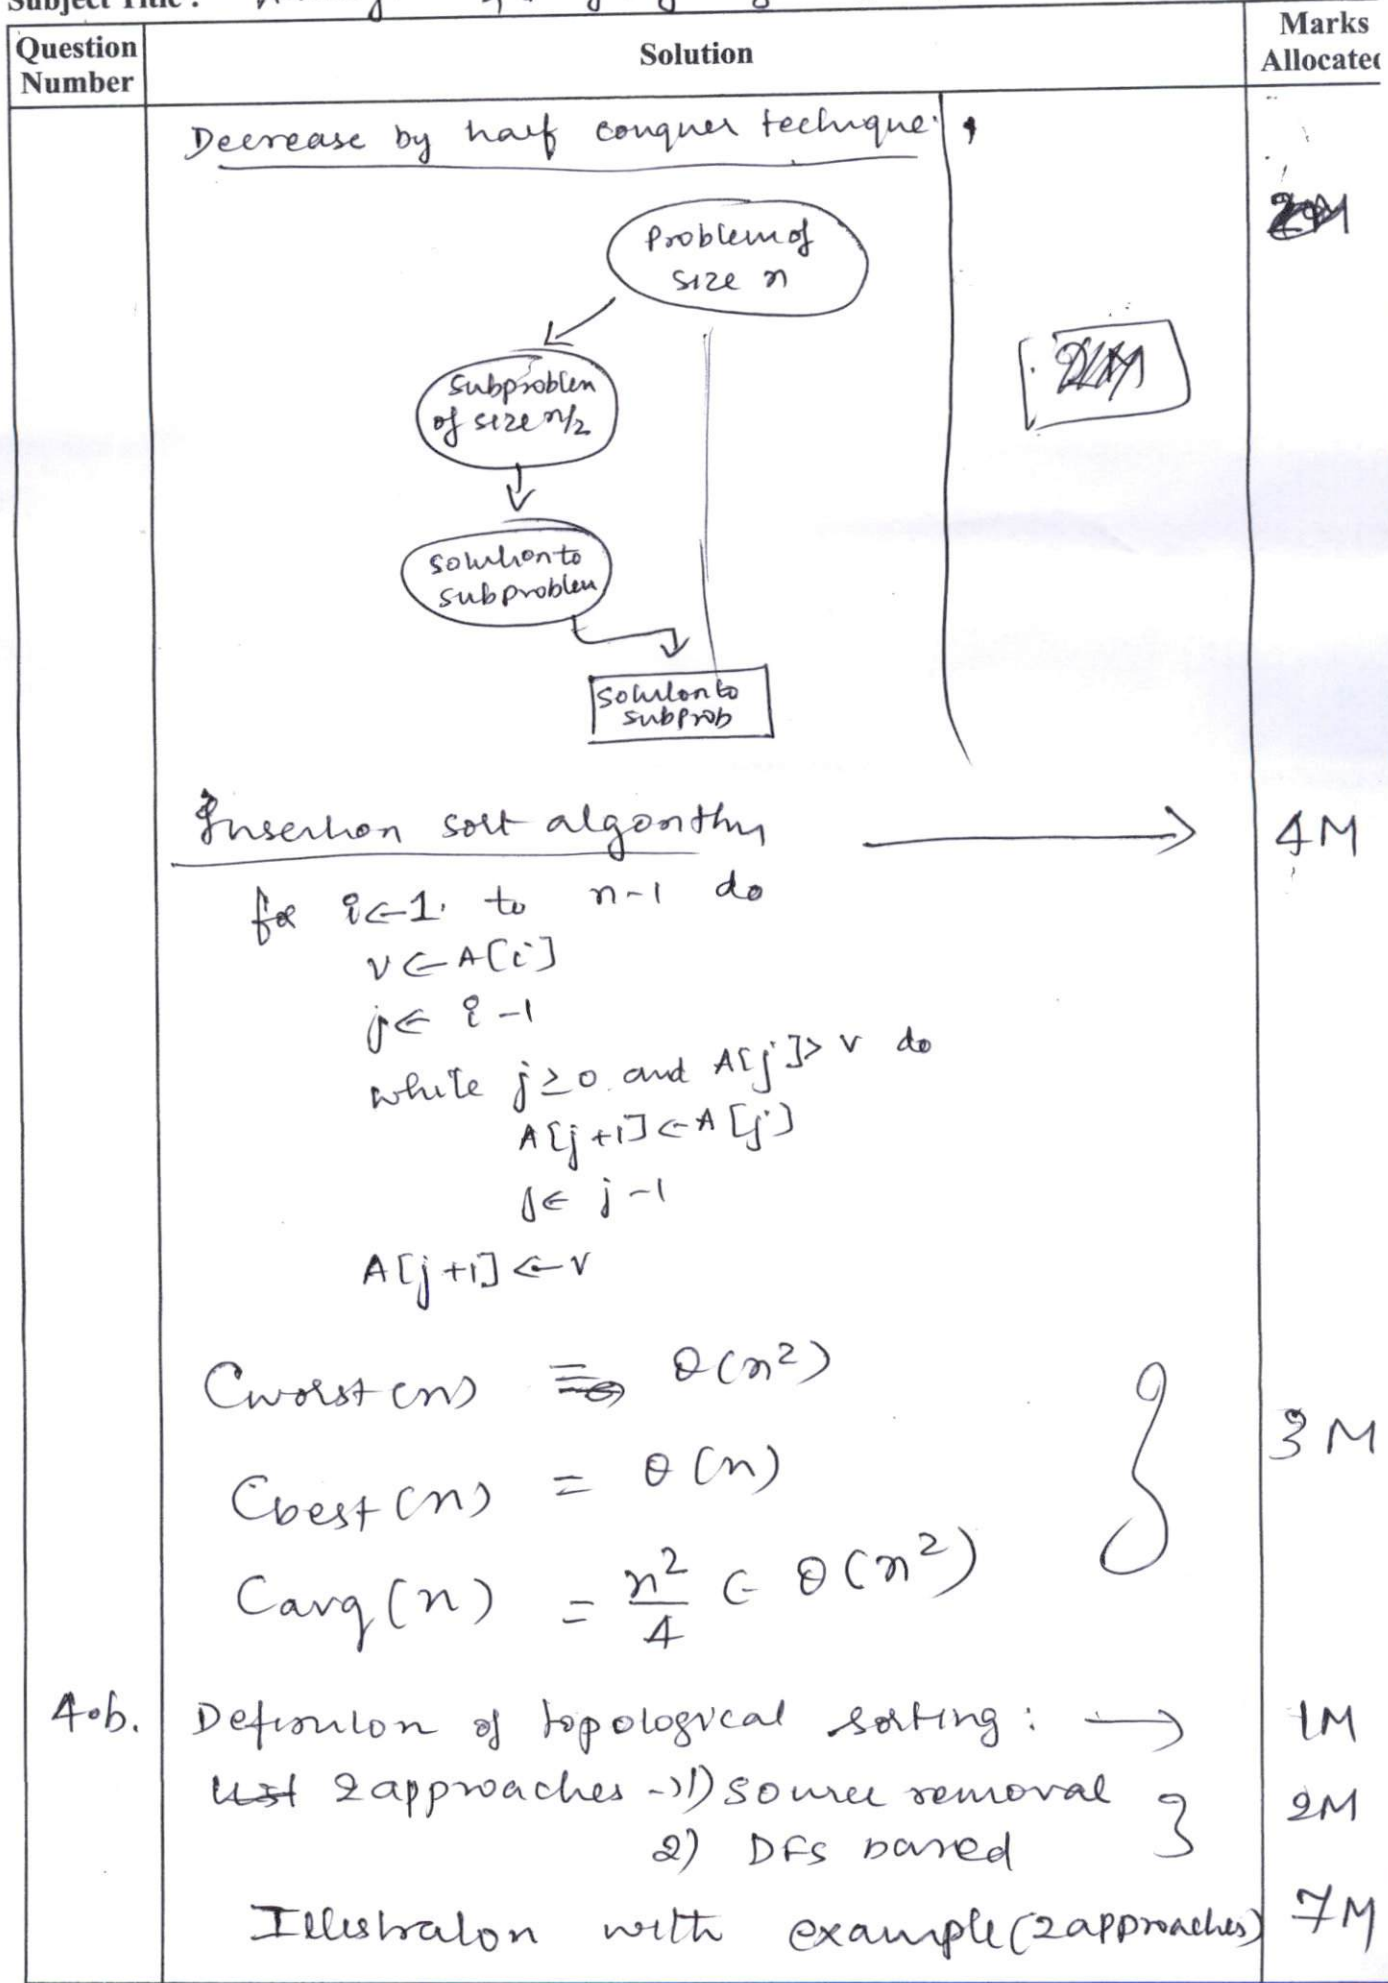 Subject Title :
Question Number
Solution
Marks Allocated
Decrease by half conquer technique.
2M
Problem of
size n
Subproblem
of size n/2
Solution to
subproblem
Solution to
subprob
Insertion sort algorithm → 4M
for i←1 to n-1 do
v←A[i]
j← i-1
while j≥0 and A[j]> v do
A[j+1]←A[j]
j← j-1
A[j+1]←v
Cworst(n) = θ(n²)
Cbest(n) = θ(n)
3M
Cavg(n) = n²/4 ∈ θ(n²)
4.b. Definition of topological sorting : → 1M
List 2 approaches → 1) source removal
2M
2) DFS based
Illustration with example (2 approaches) 7M